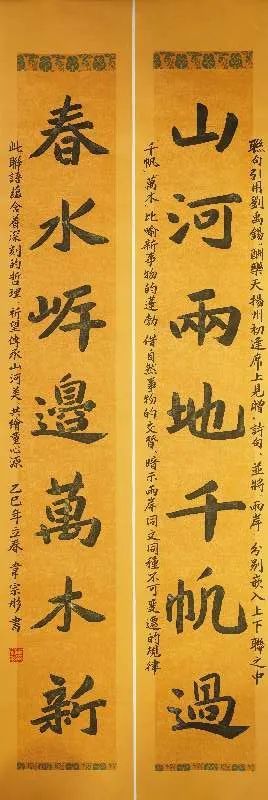 聯句引用劉禹錫《酬樂天揚州初逢席上見贈》詩句，並將「兩岸」分別嵌入上下聯之中
山河兩地千帆過
「千帆」「萬木」比喻新事物的蓬勃，借自然事物的交替，暗示兩岸同文同種不可變遷的規律
春水岸邊萬木新
此聯語蘊含着深刻的哲理，祈望傳承山河美，共繪童心源 乙巳年立春 韋宗彬書